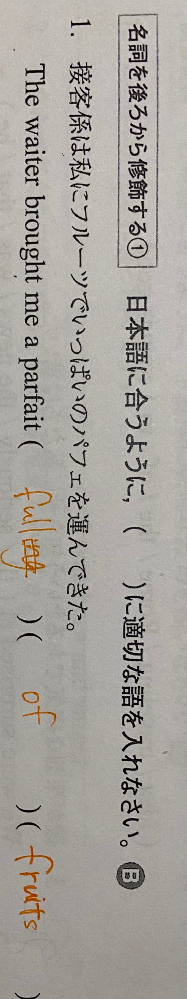 名詞を後ろから修飾する① 日本語に合うように，( )に適切な語を入れなさい。B
1. 接客係は私にフルーツでいっぱいのパフェを運んできた。
The waiter brought me a parfait ( full ) ( of ) ( fruits )